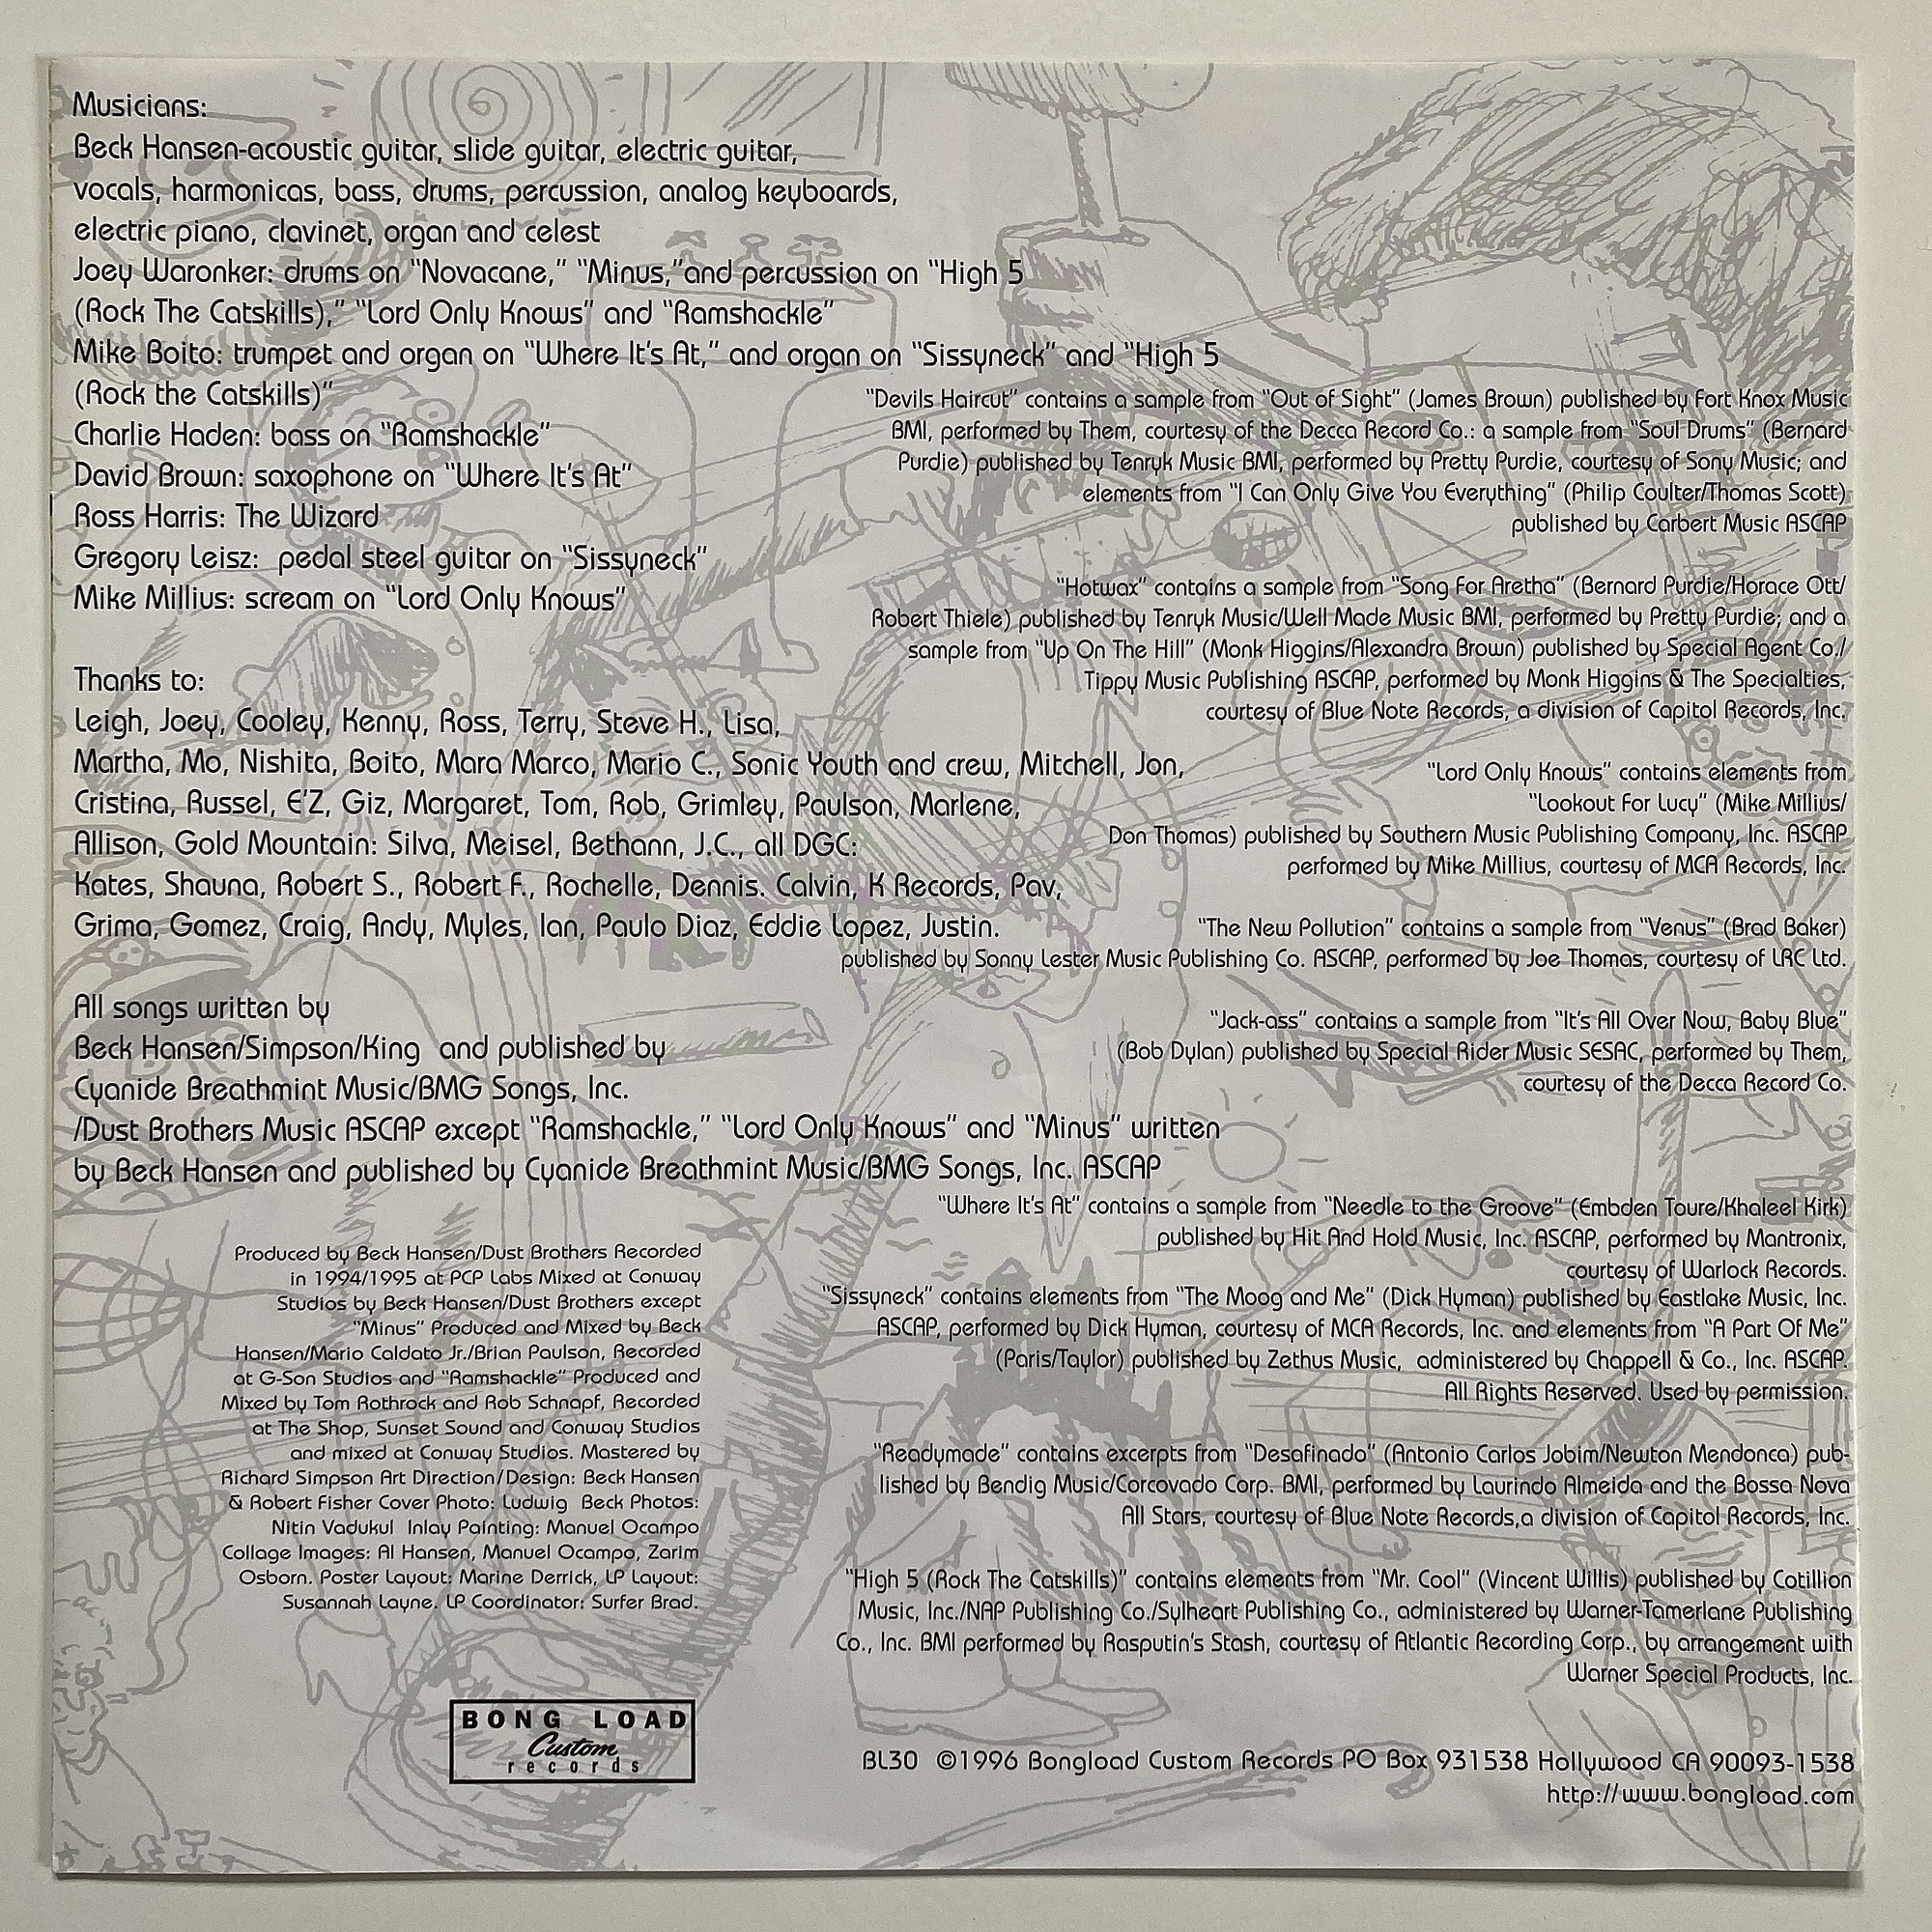 Musicians:
Beck Hansen-acoustic guitar, slide guitar, electric guitar,
vocals, harmonicas, bass, drums, percussion, analog keyboards,
electric piano, clavinet, organ and celest
Joey Waronker: drums on “Novacane,” “Minus,”and percussion on “High 5
(Rock The Catskills),” “Lord Only Knows” and “Ramshackle”
Mike Boito: trumpet and organ on “Where It’s At,” and organ on “Sissyneck” and “High 5
(Rock the Catskills)”
Charlie Haden: bass on “Ramshackle”
David Brown: saxophone on “Where It’s At”
Ross Harris: The Wizard
Gregory Leisz: pedal steel guitar on “Sissyneck”
Mike Millius: scream on “Lord Only Knows”
Thanks to:
Leigh, Joey, Cooley, Kenny, Ross, Terry, Steve H., Lisa,
Martha, Mo, Nishita, Boito, Mara Marco, Mario C., Sonic Youth and crew, Mitchell, Jon,
Cristina, Russel, E’Z, Giz, Margaret, Tom, Rob, Grimley, Paulson, Marlene,
Allison, Gold Mountain: Silva, Meisel, Bethann, J.C., all DGC:
Kates, Shauna, Robert S., Robert F., Rochelle, Dennis. Calvin, K Records, Pav,
Grima, Gomez, Craig, Andy, Myles, Ian, Paulo Diaz, Eddie Lopez, Justin.
All songs written by
Beck Hansen/Simpson/King and published by
Cyanide Breathmint Music/BMG Songs, Inc.
/Dust Brothers Music ASCAP except “Ramshackle,” “Lord Only Knows” and “Minus” written
by Beck Hansen and published by Cyanide Breathmint Music/BMG Songs, Inc. ASCAP
Produced by Beck Hansen/Dust Brothers Recorded
in 1994/1995 at PCP Labs Mixed at Conway
Studios by Beck Hansen/Dust Brothers except
“Minus” Produced and Mixed by Beck
Hansen/Mario Caldato Jr./Brian Paulson, Recorded
at G-Son Studios and “Ramshackle” Produced and
Mixed by Tom Rothrock and Rob Schnapf, Recorded
at The Shop, Sunset Sound and Conway Studios
and mixed at Conway Studios. Mastered by
Richard Simpson Art Direction/Design: Beck Hansen
& Robert Fisher Cover Photo: Ludwig Beck Photos:
Nitin Vadukul Inlay Painting: Manuel Ocampo
Collage Images: Al Hansen, Manuel Ocampo, Zarim
Osborn. Poster Layout: Marine Derrick, LP Layout:
Susannah Layne. LP Coordinator: Surfer Brad.
BONG LOAD
Custom
records
“Devils Haircut” contains a sample from “Out of Sight” (James Brown) published by Fort Knox Music
BMI, performed by Them, courtesy of the Decca Record Co.: a sample from “Soul Drums” (Bernard
Purdie) published by Tenryk Music BMI, performed by Pretty Purdie, courtesy of Sony Music; and
elements from “I Can Only Give You Everything” (Philip Coulter/Thomas Scott)
published by Carbert Music ASCAP
“Hotwax” contains a sample from “Song For Aretha” (Bernard Purdie/Horace Ott/
Robert Thiele) published by Tenryk Music/Well Made Music BMI, performed by Pretty Purdie; and a
sample from “Up On The Hill” (Monk Higgins/Alexandra Brown) published by Special Agent Co./
Tippy Music Publishing ASCAP, performed by Monk Higgins & The Specialties,
courtesy of Blue Note Records, a division of Capitol Records, Inc.
“Lord Only Knows” contains elements from
“Lookout For Lucy” (Mike Millius/
Don Thomas) published by Southern Music Publishing Company, Inc. ASCAP
performed by Mike Millius, courtesy of MCA Records, Inc.
“The New Pollution” contains a sample from “Venus” (Brad Baker)
published by Sonny Lester Music Publishing Co. ASCAP, performed by Joe Thomas, courtesy of LRC Ltd.
“Jack-ass” contains a sample from “It’s All Over Now, Baby Blue”
(Bob Dylan) published by Special Rider Music SESAC, performed by Them,
courtesy of the Decca Record Co.
“Where It’s At” contains a sample from “Needle to the Groove” (Embden Toure/Khaleel Kirk)
published by Hit And Hold Music, Inc. ASCAP, performed by Mantronix,
courtesy of Warlock Records.
“Sissyneck” contains elements from “The Moog and Me” (Dick Hyman) published by Eastlake Music, Inc.
ASCAP, performed by Dick Hyman, courtesy of MCA Records, Inc. and elements from “A Part Of Me”
(Paris/Taylor) published by Zethus Music, administered by Chappell & Co., Inc. ASCAP.
All Rights Reserved. Used by permission.
“Readymade” contains excerpts from “Desafinado” (Antonio Carlos Jobim/Newton Mendonca) pub-
lished by Bendig Music/Corcovado Corp. BMI, performed by Laurindo Almeida and the Bossa Nova
All Stars, courtesy of Blue Note Records,a division of Capitol Records, Inc.
“High 5 (Rock The Catskills)” contains elements from “Mr. Cool” (Vincent Willis) published by Cotillion
Music, Inc./NAP Publishing Co./Sylheart Publishing Co., administered by Warner-Tamerlane Publishing
Co., Inc. BMI performed by Rasputin’s Stash, courtesy of Atlantic Recording Corp., by arrangement with
Warner Special Products, Inc.
BL30 ©1996 Bongload Custom Records PO Box 931538 Hollywood CA 90093-1538
http://www.bongload.com